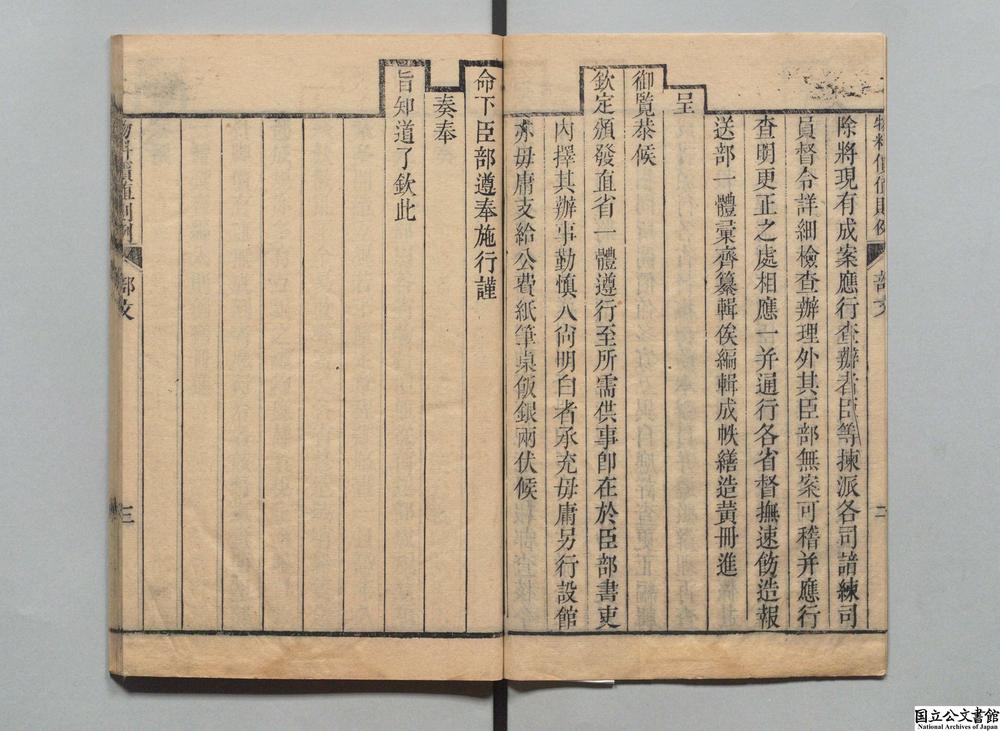 物料價值則例
部文
二
除將現有成案應行查辦者臣等揀派各司諳練司
員督令詳細檢查辦理外其臣部無案可稽并應行
查明更正之處相應一并通行各省督撫速飭造報
送部一體彙齊纂輯俟編輯成帙繕造黃冊進
呈
御覽恭候
欽定頒發直省一體遵行至所需供事即在於臣部書吏
內擇其辦事勤慎人尚明白者承充毋庸另行設館
亦毋庸支給公費紙筆桌飯銀兩伏候
命下臣部遵奉施行謹
奏奉
旨知道了欽此
物料價值則例
部文
三
国立公文書館
National Archives of Japan